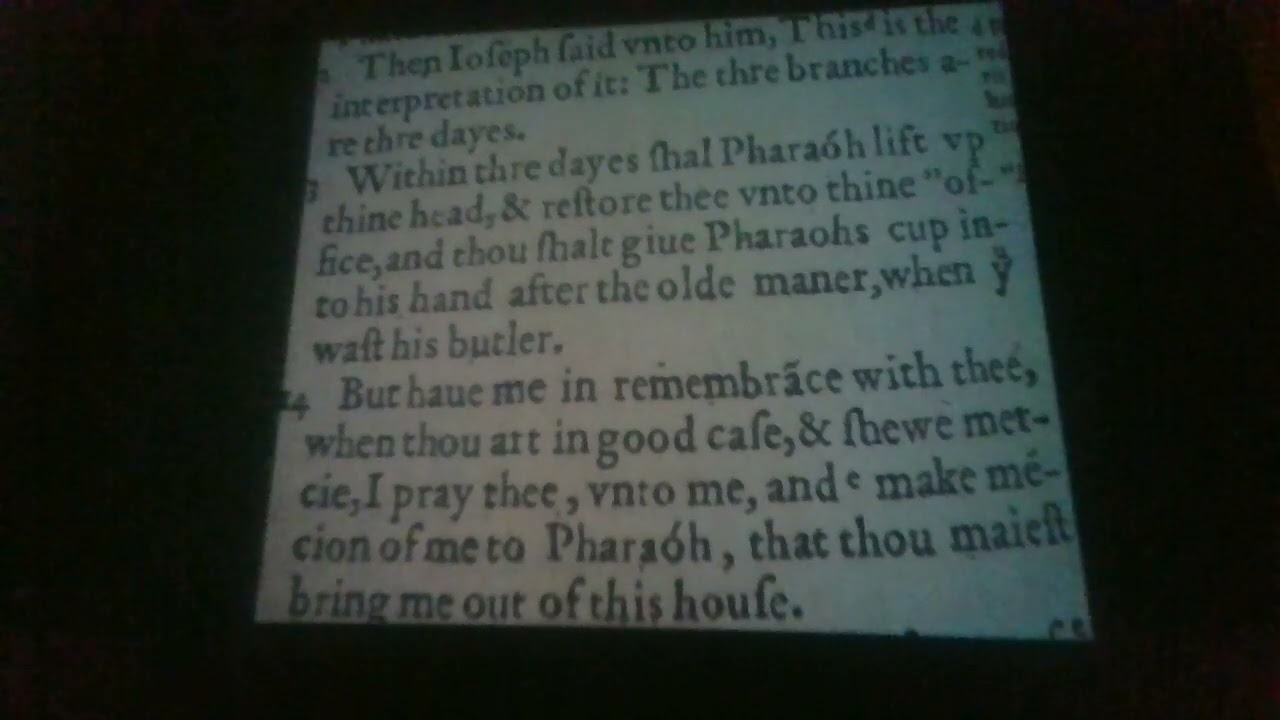 Then Ioſeph ſaid vnto him, This d is the
interpretation of it: The thre branches a-
re thre dayes.
3 Within thre dayes ſhal Pharaóh lift vp
thine head, & reſtore thee vnto thine "of-
fice, and thou ſhalt giue Pharaohs cup in-
to his hand after the olde maner, when yͧ
waſt his butler.
14 But haue me in remembrãce with thee,
when thou art in good caſe, & ſhewe mer-
cie, I pray thee, vnto me, and e make mé-
cion of me to Pharaóh, that thou maieſt
bring me out of this houſe.